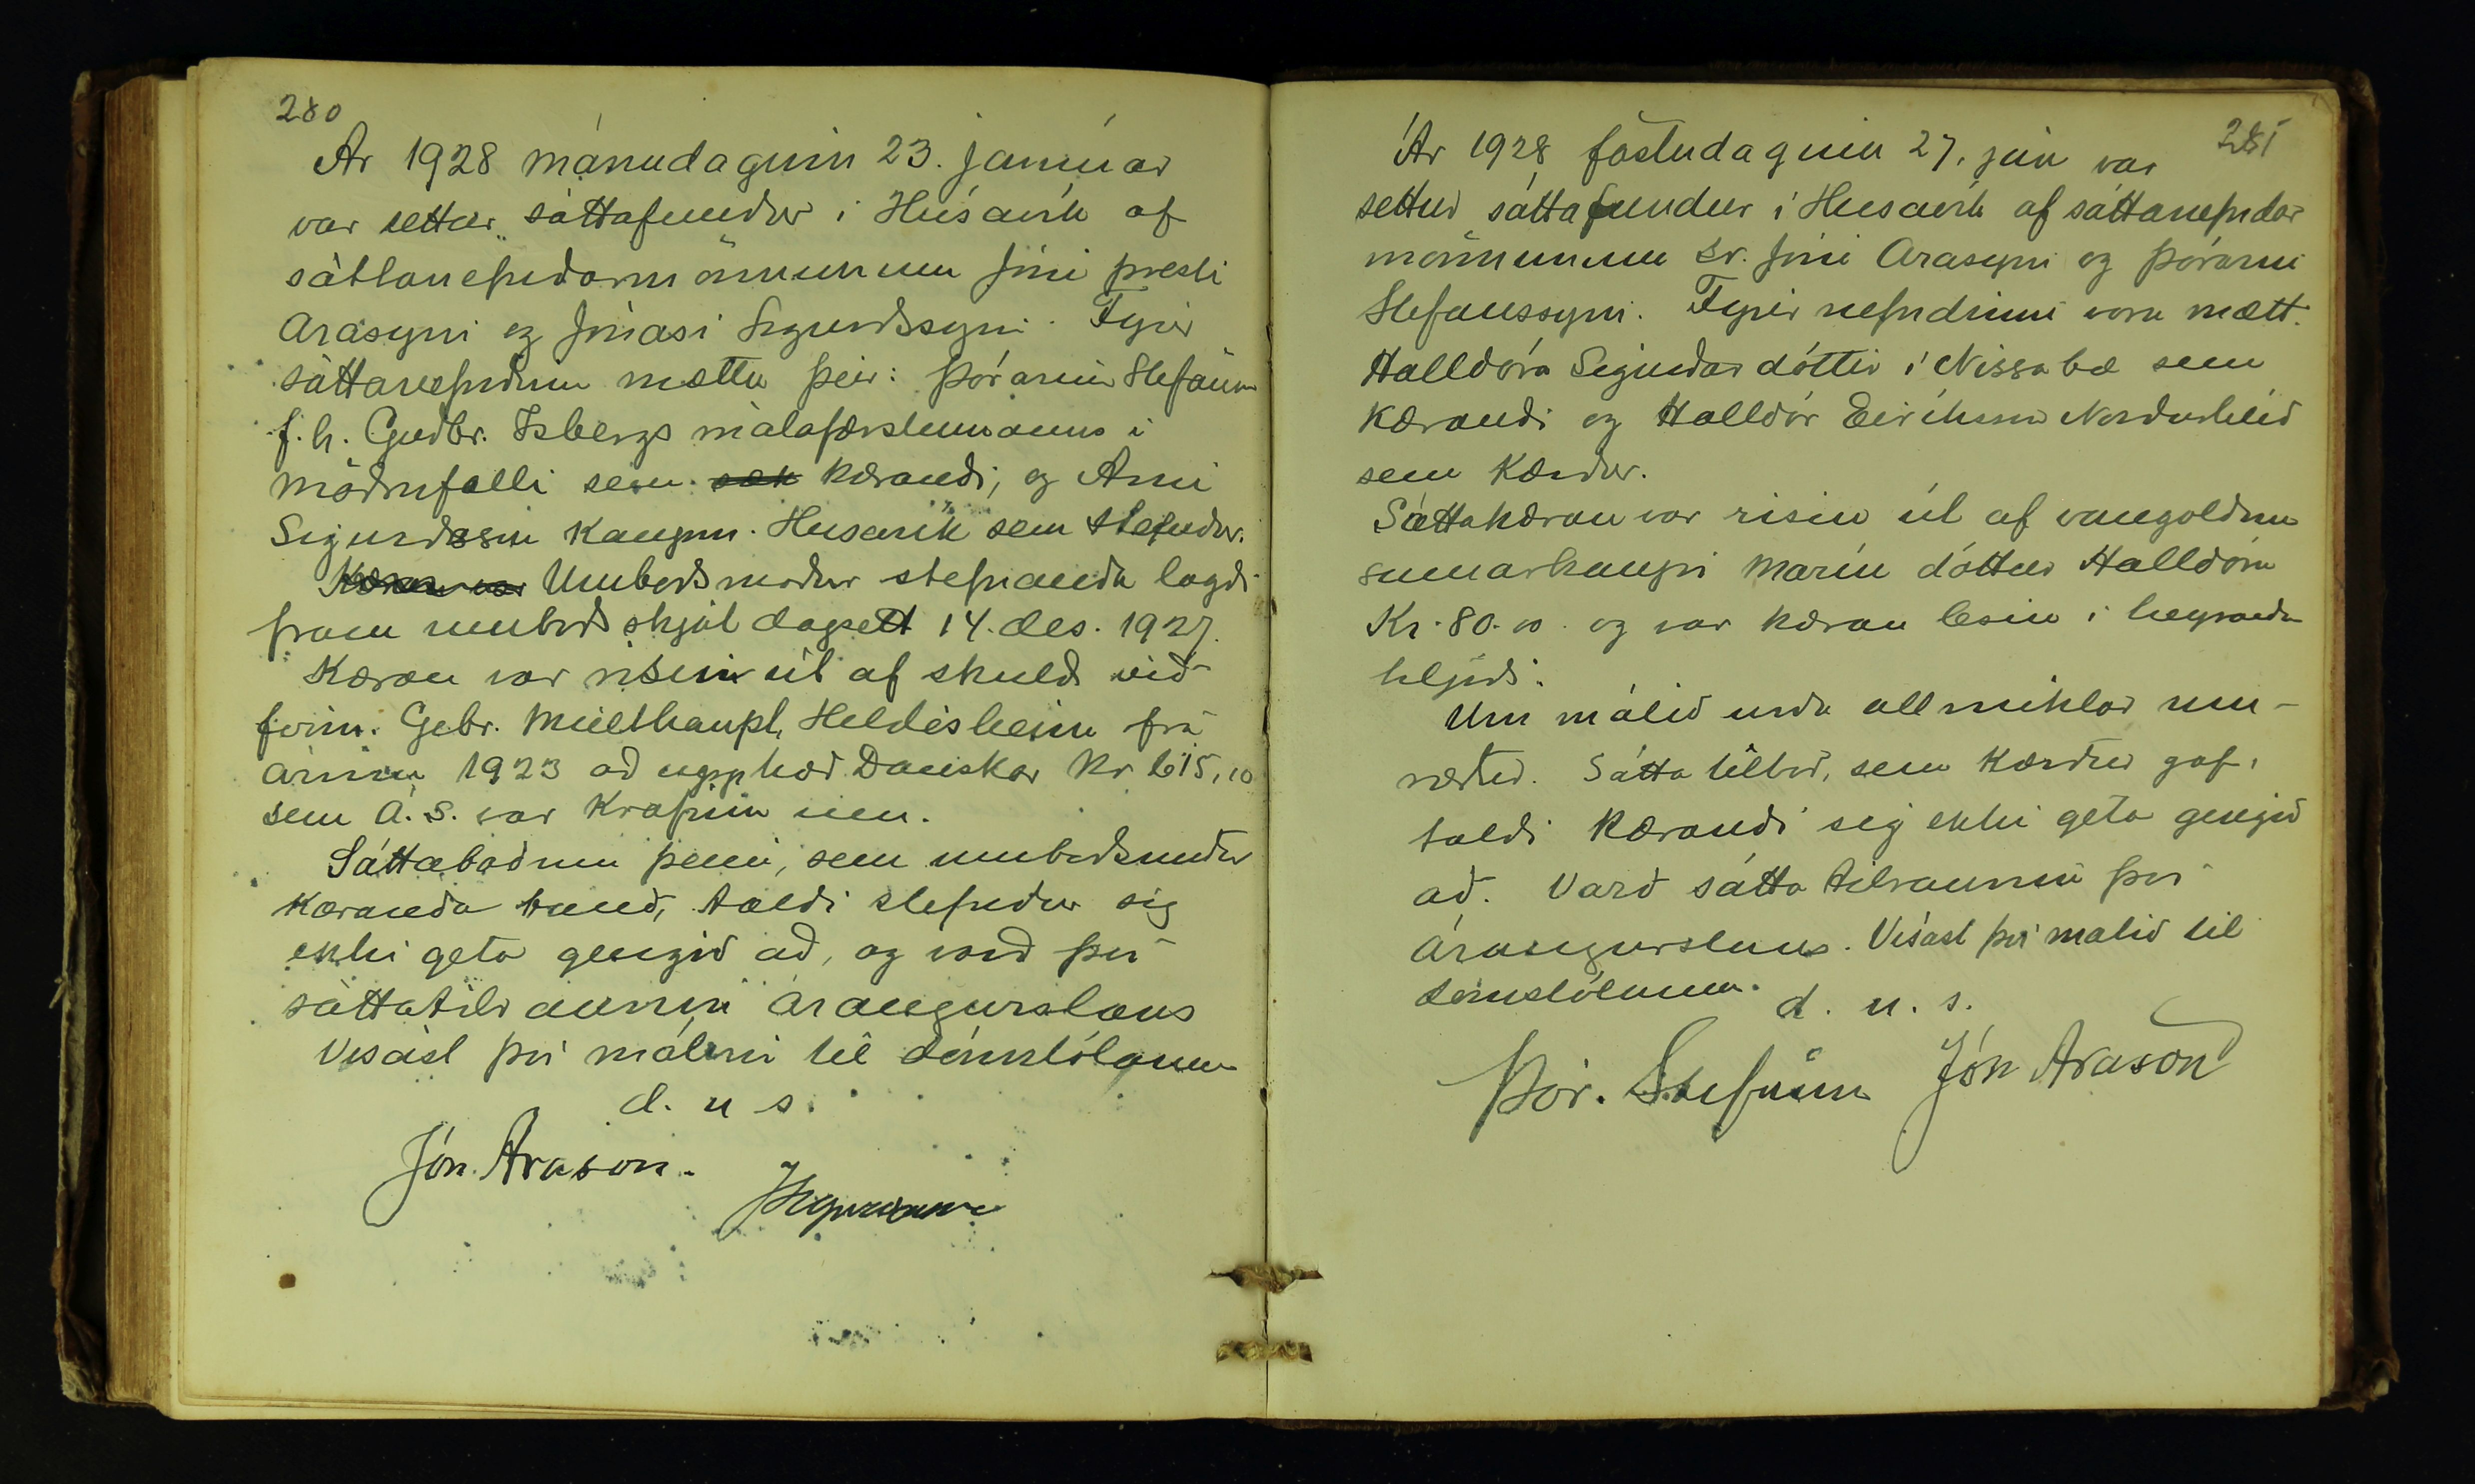 280
Ár 1928 mánudaginn 23. janúar
var settur sáttafundur í Húsavík af
sáttanefndarmönnunum Jóni presti
Arasyni og Jónasi Sigurðssyni. Fyrir
sáttanefndinni mættu þeir: Þórarinn Stefánsson
f. h. Guðbr. Isbergs málafærslumanns í
Möðrufelli sem kærandi, og Árni
Sigurðsson kaupm. Húsavík sem stefndur.
Umboðsmaður stefnanda lagði
fram umboðsskjal dagsett 14. des. 1927.
Kæran var risin út af skuld við
firm. Gebr. Mielthaupt, Hildesheim frá
árinu 1923 að upphæð Danskar Kr 615,10
sem Á. S. var krafinn um.
Sáttaboðum þeim, sem umboðsmaður
kæranda bauð, taldi stefndur sig
ekki geta gengið að, og varð því
sáttatilraunin árangurslaus
Vísast því málinu til dómstólanna
d. u s.
Jón Arason.
JSigurðsson
281
Ár 1928 föstudaginn 27. jan var
settur sáttafundur í Húsavík af sáttanefndar
mönnunum sr. Jóni Arasyni og Þórarni
Stefánssyni. Fyrir nefndinni voru mætt.
Halldóra Sigurðardóttir í Nissabæ sem
kærandi og Halldór Eiríksson Norðurhlíð
sem kærður.
Sáttakæran var risin út af vangoldnu
sumarkaupi Maríu dóttur Halldóru
Kr. 80.00. og var kæran lesin í heyranda
hljóði.
Um málið urðu allmiklar um-
ræður. Sátta tilboð, sem kærður gaf,
taldi kærandi sig ekki geta gengið
að. Varð sátta tilraunin því
árangurslaus. Vísast því málið til
dómstólanna.
d. u. s.
Þór. Stefánss Jón Arason